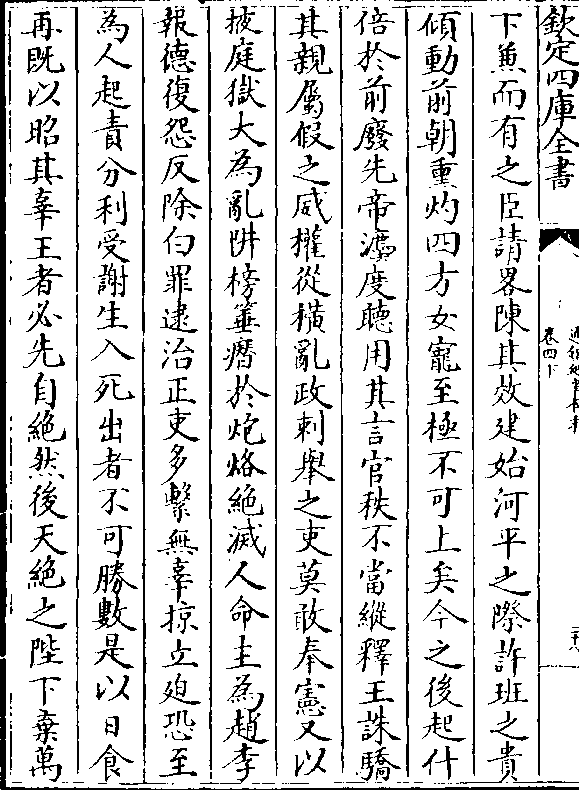 欽定四庫全書
卷四下
下兼而有之臣請畧陳其效建始河平之際許班之貴
傾動前朝熏灼四方女寵至極不可上矣今之後起什
倍於前廢先帝灋度聽用其言官秩不當縱釋王誅驕
其親屬假之威權從橫亂政刺舉之吏莫敢奉憲又以
掖庭獄大為亂阱榜箠㿊於炮烙絶滅人命主為趙李
報德復怨反除白罪逮治正吏多繫無辜掠立迫恐至
為人起責分利受謝生入死出者不可勝數是以日食
再既以昭其辜王者必先自絶然後天絶之陛下棄萬